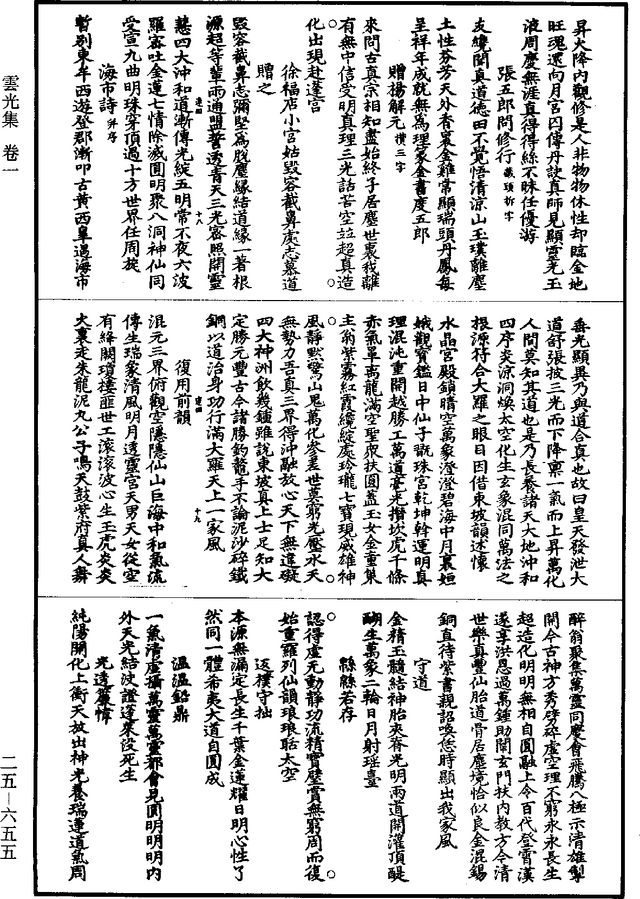 昇火降內觀修是人非物物休性却臨金地
旺魂還向月宮囚傳丹訣真師見顯靈光玉
液周慶無涯真得得絲不昧任優游
張五郎問修行 藏頭拆字
友纔聞真道德田不覺悟清涼山玉璞離塵
土性芬芳天外香裏金雞常顯瑞頭丹鳳每
呈祥年成就無為理家金書慶五郎
贈楊解元 攢三字
來問古真宗相知盡始終子居塵世裏我離
有無中信受明真理三光話苦空並超真造
化出現赴蓬宮
徐福店小宮姑毀容截鼻處志慕道
贈之
毀容截鼻志彌堅為脫塵緣結道緣一著根
源超等輩兩通盟誓透青天三光密照開靈
十八
慧四大沖和道漸傳光綻五明常不夜六波
羅蜜吐金蓮七情除滅圓明聚八洞神仙同
受宣九曲明珠穿頂過十方世界任周旋
海市詩 并序
暫別東牟西遊登郡漸叩古黃西皐遇海市
垂光顯異乃與道合真也故曰皇天發泄大
道舒張披三光而下降禀一氣而上昇萬化
人間莫知其道也是乃長養諸天大地沖和
四序炎涼洞煥太空化生玄象混同萬法之
根源符合大羅之眼目因借東坡韻述懷
水晶宮殿鎖晴空萬象澄澄碧海中月裏姮
娥觀寶鑑日中仙子翫珠宮乾坤斡運明真
理混沌重開越勝工萬道毫光攢坎虎千條
赤氣單离龍滿空聖眾扶圓蓋玉女金童策
主翁紫霧紅霞纔綻處玲瓏七寶現威雄神
風靜默驚山鬼萬化參差世莫窮光壓水天
無勢力吾真三界得沖融放心天下無遮礙
四大神洲飲幾鍾雖說東坡真上士足知大
定勝元豐古今諸勝釣鼇手不論泥沙碎鐵
銅以道治身功行滿大羅天上一家風
十九
復用前韻
混元三界俯觀空隱隱仙山巨海中和氣流
傳生瑞象清風明月透靈宮天男天女從空
有絳闕瓊樓匪世工滾滾波心生玉虎炎炎
火裏走朱龍泥丸公子鳴天鼓紫府真人舞
醉翁聚集萬靈同慶會飛騰八極示清雄掣
開今古神方秀劈碎虛空理不窮永永長生
超造化明明無相自圓融上令百代登霄漢
遂享洪恩過萬鍾助闡玄門扶內教方今清
世樂真豐仙胎道骨居塵境恰似良金混錫
銅直待紫書親詔喚恁時顯出我家風
守道
金精玉髓結神胎夾脊光明兩道開灌頂醍
醐生萬象二輪日月射瑤臺
緜緜若存
認得虛無動靜功流精寶壁賞無窮周而復
始重羅列仙韻琅琅聒太空
返樸守拙
本源無漏定長生千葉金蓮耀日明心性了
然同一體希夷大道自圓成
溫溫鉛鼎
一氣濤虛攝萬靈萬靈都會見圓明明明內
外天光結波證蓬萊沒死生
光透簾幃
純陽關化上衝天放出神光養瑞蓮道氣周
雲光集 卷一
二五—六五五